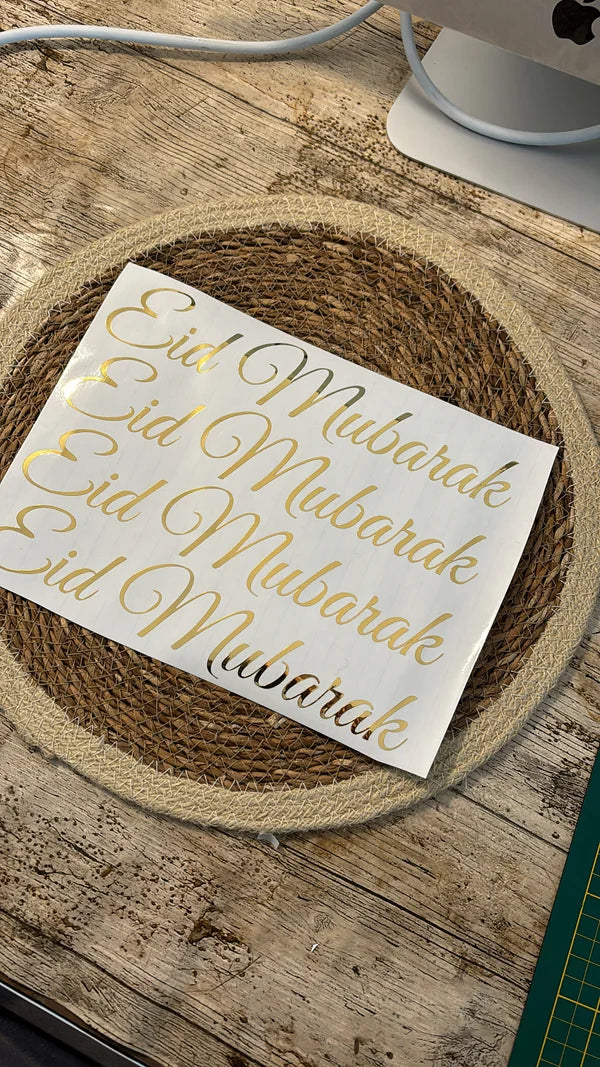 Eid Mubarak
Eid Mubarak
Eid Mubarak
Eid Mubarak